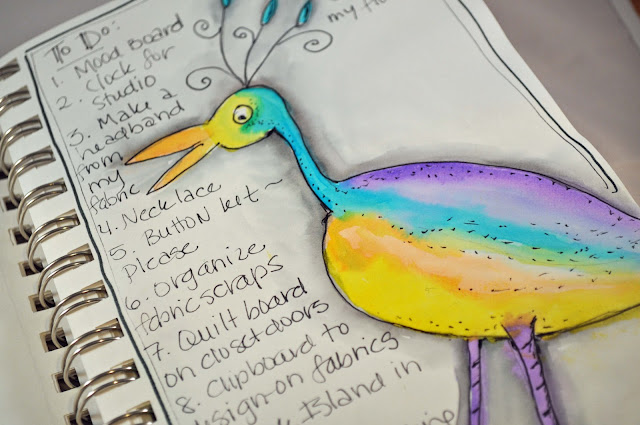 To Do:
1. Mood Board
2. Clock for
Studio
3. Make a
headband
from
my
fabric
4. Necklace
5. Button Ket ~
Please
6. organize
fabric scraps
7. Quilt board
on closet doors
8. Clipboard to
design on fabrics
Island in
my